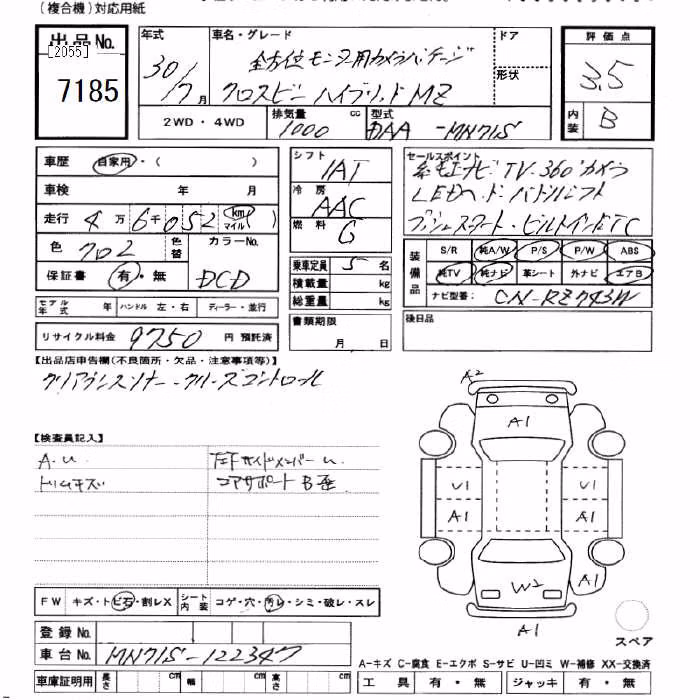 (複合機)対応用紙
出品No.
[2055]
7185
年式
30/7月
車名・グレード
全方位モニタ用カメラパッケージ
クロスビー ハイブリッドMZ
ドア
形状
評価点
3.5
内装 B
2WD・4WD
排気量 1000 cc
型式 DAA-MN71S
車歴 自家用・( )
車検 年 月
走行 4万6千052 km マイル ( )
色 クロ2 色替
カラーNo.
保証書 有・無
DCD
シフト IAT
冷房 AAC
燃料 G
乗車定員 5 名
積載量 kg
総重量 kg
セールスポイント
純正ナビTV・360°カメラ
LEDヘッド・パドルシフト
プッシュスタート・ビルトインETC
装備品
S/R 純A/W P/S P/W ABS
純TV 純ナビ 革シート 外ナビ エアB
ナビ型番: CN-RZ743W
モデル年式 年 ハンドル 左・右 ディーラー・並行
リサイクル料金 9750 円 預託済
書類期限
月 日
後日品
【出品店申告欄(不良箇所・欠品・注意事項等)】
クリアランスソナー・クルーズコントロール
【検査員記入】
A.u
左下サイドメンバーu
ドリムキズ
コアサポートB歪
A2
A1
U1
U1
A1
A1
W2
A1
A1
スペア
FW キズ・トビ石・割レX シート内装 コゲ・穴・汚レ・シミ・破レ・スレ
登録No.
車台No. MN71S-122347
車庫証明用 長さ cm 幅 cm 高さ cm
A-キズ C-腐食 E-エクボ S-サビ U-凹ミ W-補修 XX-交換済
工具 有・無 ジャッキ 有・無